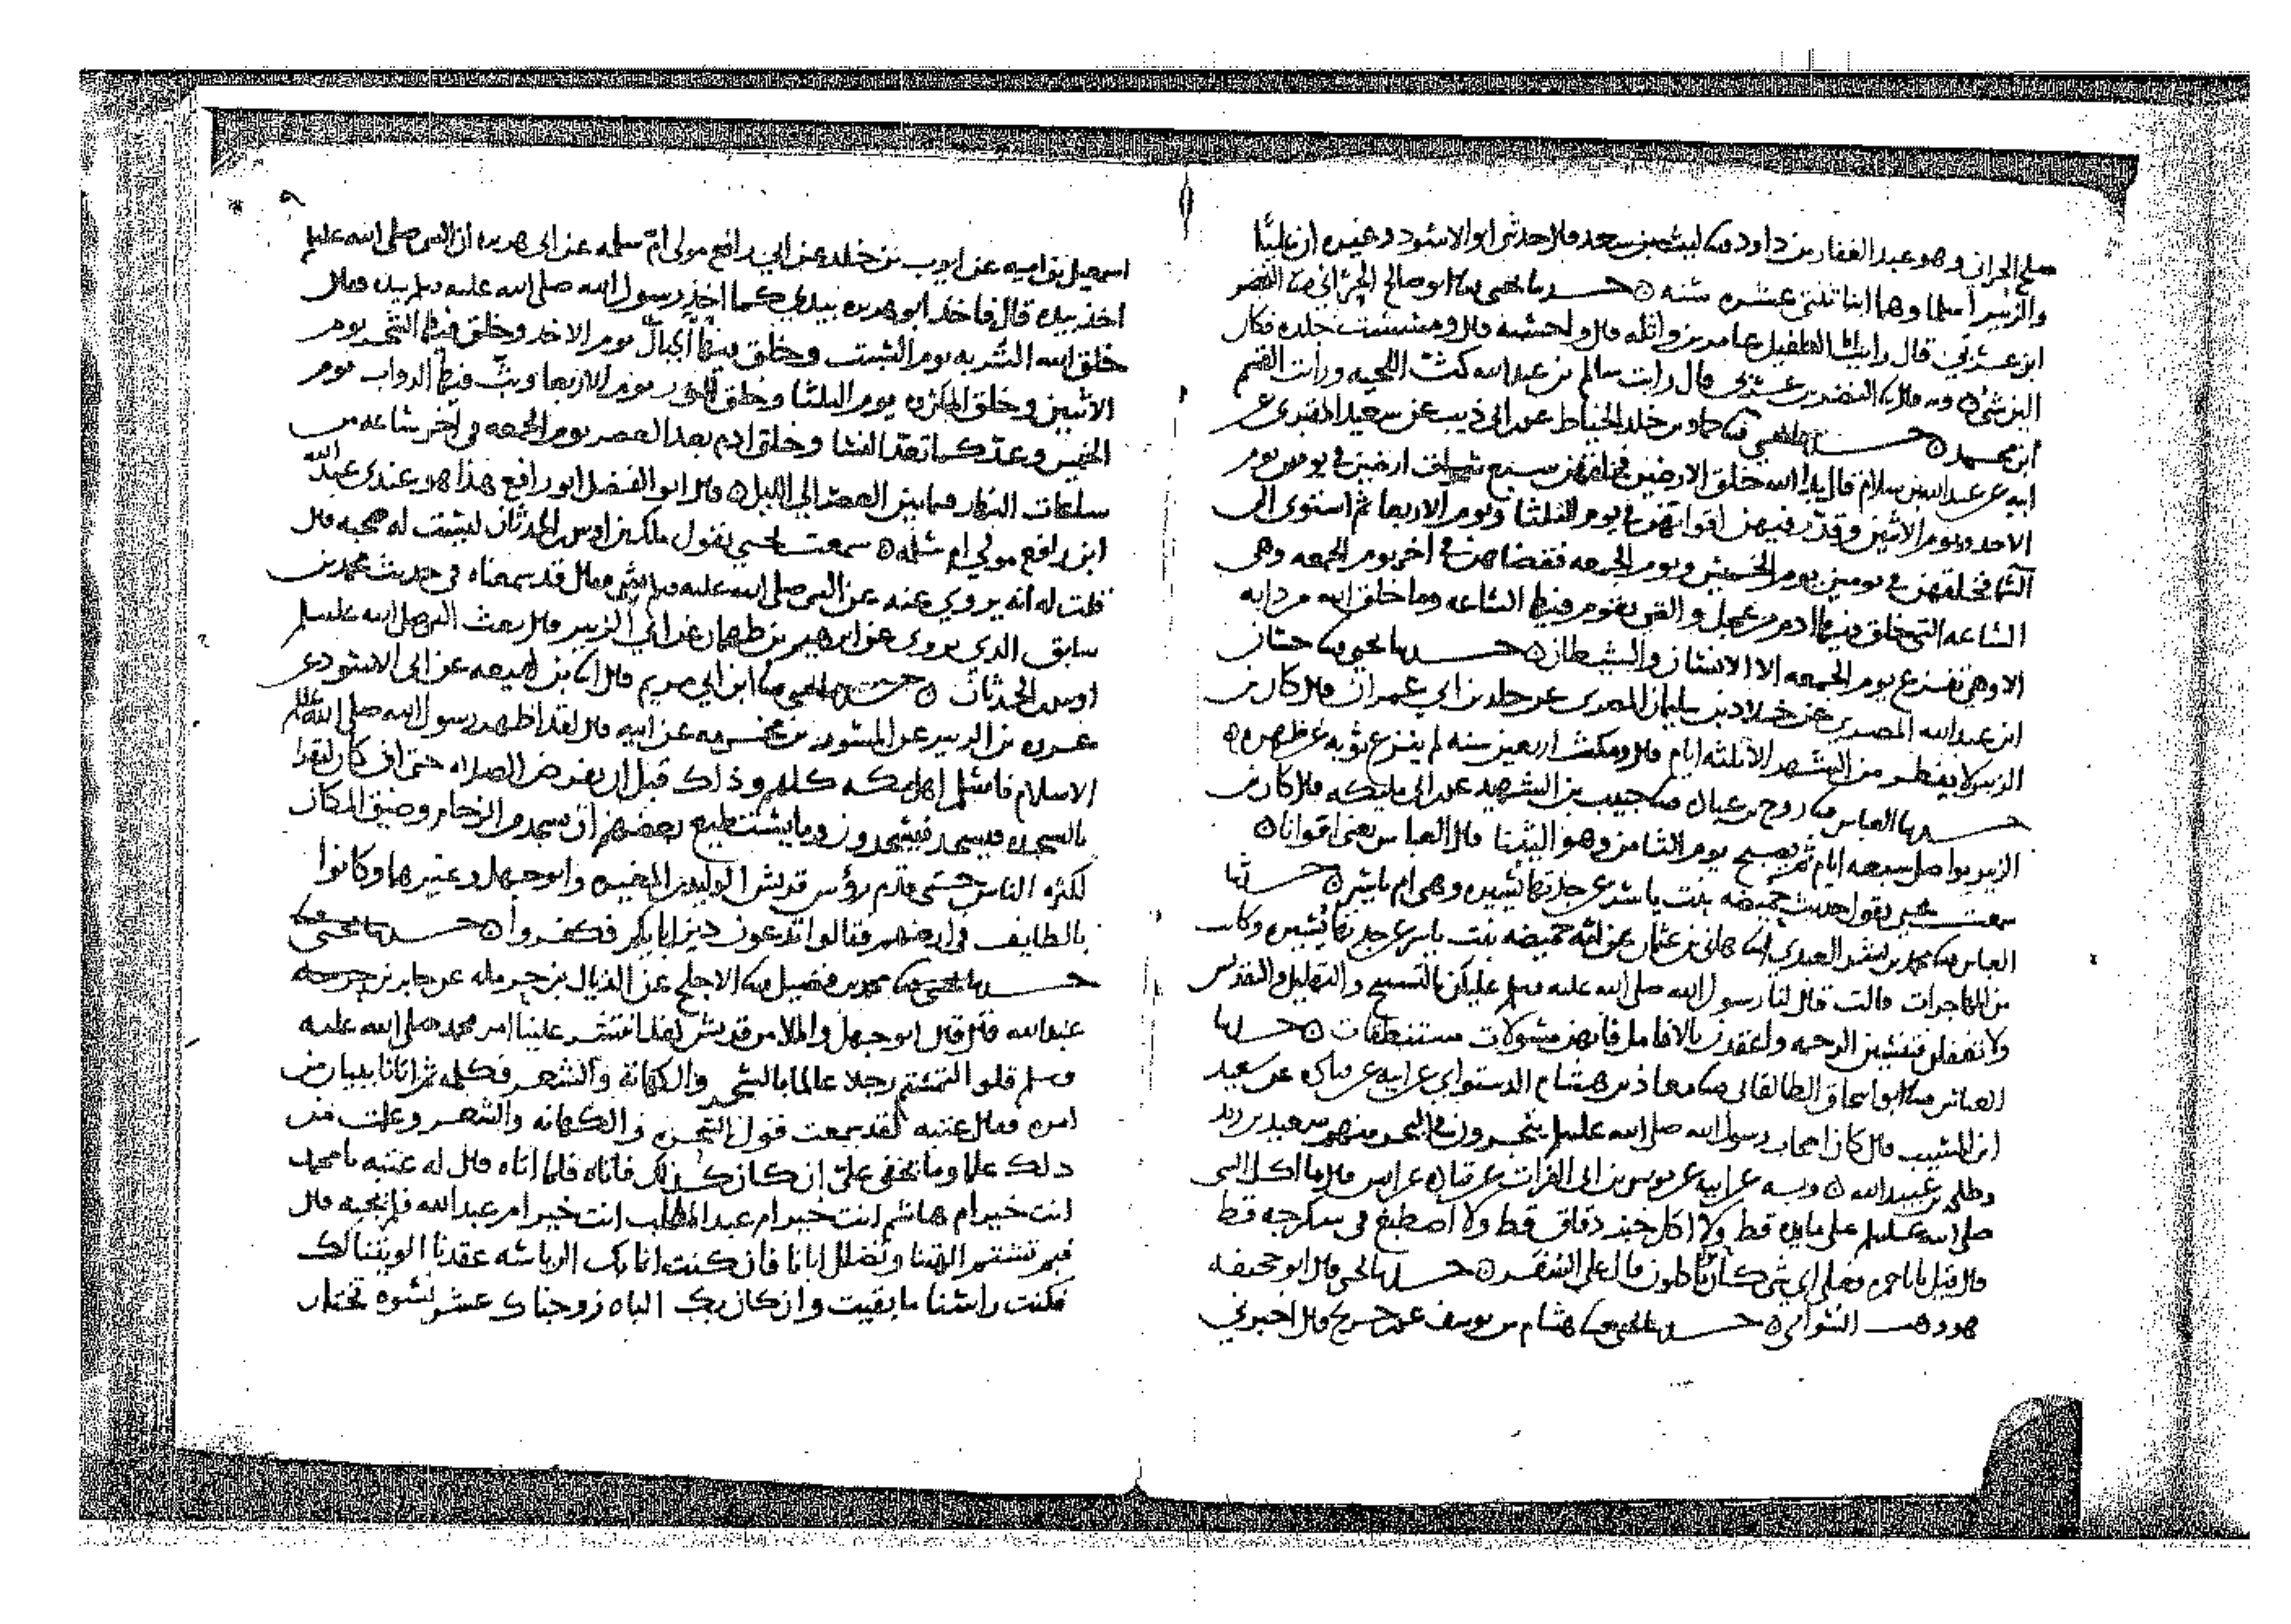 صلح الحراني وهو عبد الغفار بن داود ثنا ليث بن سعد قال حدثني ابو الاسود وغيره ان عليا
والزبير اسلما وهما ابنا ثنتي عشره سنه حدثنا يحيى ثنا ابو صالح الحراني ثنا النضر
ابن عربي قال رايت ابا الطفيل عامر بن واثله قال ولحسته قال ومسست جلده فكان
الين شي وبه قال ثنا النضر بن عربي قال رايت سالم بن عبد الله كث اللحيه ورايت القسم
ابن محمد حدثنا يحيى ثنا حماد بن خلد الخياط عن ابن ابي ذيب عن سعيد المقبري عن
ابيه عن عبد الله بن سلام قال بدا الله خلق الارضين فخلق سبع ارضين في يومين يوم
الاحد ويوم الاثنين وقدر فيهن اقواتهن في يوم الثلثا ويوم الاربعا ثم استوى الى
السما فخلقهن في يومين يوم الخميس ويوم الجمعه فقضاهن في اخر يوم الجمعه وهي
الساعه التي خلق فيها ادم على عجل والتي تقوم فيها الساعه وما خلق الله من دابه
الا وهي تفزع يوم الجمعه الا الانسان والشيطان حدثنا يحيى ثنا حسان
ابن عبد الله المصري عن خلاد بن سليمان المصري عن خلد بن ابي عمران قال كان ابن
الزبير لا يفطر من الشهر الا ثلثه ايام قال ومكث اربعين سنه لم ينزع ثوبه عن ظهره
حدثنا العباس ثنا روح بن عباده ثنا حبيب بن الشهيد عن ابن ابي مليكه قال كان ابن
الزبير يواصل سبعه ايام ثم يصبح يوم الثامن وهو اليثنا قال العباس يعني اقوانا
سمعت يحيى يقول حديث حميضه بنت ياسر عن جدتها يسيره وهي ام ياسر حدثنا
العباس ثنا محمد بن بشر العبدي ثنا هاني بن عثمان عن امه حميضه بنت ياسر عن جدتها يسيره وكانت
من المهاجرات قالت قال لنا رسول الله صلى الله عليه وسلم عليكن بالتسبيح والتهليل والتقديس
ولا تغفلن فتنسين الرحمه واعقدن بالانامل فانهن مسولات مستنطقات حدثنا
العباس ثنا ابو اسحاق الطالقاني ثنا معاذ بن هشام الدستوائي عن ابيه عن قتاده عن سعيد
ابن المسيب قال كان اصحاب رسول الله صلى الله عليه وسلم يتجرون في البحر منهم سعيد بن زيد
وطلحه بن عبيد الله وبه عن ابيه عن يونس بن ابي الفرات عن قتاده عن انس قال ما اكل النبي
صلى الله عليه وسلم على مايده قط ولا اكل خبز دقاق قط ولا اصطبغ في سكرجه قط
قال قيل يا ابا حمزه فعلى اي شي كانوا ياكلون قال على السفر حدثنا يحيى قال ابو جحيفه
السوائي حدثنا يحيى ثنا هشام بن يوسف عن ابن جريج قال اخبرني
اسمعيل بن اميه عن ايوب بن خلد عن ابي رافع مولى ام سلمه عن ابي هريره ان النبي صلى الله عليه
اخذ بيده قال فاخذ ابو هريره بيدي كما اخذ رسول الله صلى الله عليه وسلم بيده وقال
خلق الله التربه يوم السبت وخلق فيها الجبال يوم الاحد وخلق فيها الشجر يوم
الاثنين وخلق المكروه يوم الثلثا وخلق النور يوم الاربعا وبث فيها الدواب يوم
الخميس وعد كما تعد النسا وخلق ادم بعد العصر يوم الجمعه في اخر ساعه من
ساعات النهار فيما بين العصر الى الليل قال ابو الفضل ابو رافع هذا هو عندي عبد الله
ابن رافع مولى ام سلمه سمعت يحيى يقول ملك بن اوس بن الحدثان ليست له صحبه قال
قلت له انه يروي عنه عن النبي صلى الله عليه قال قد سمعناه في حديث محمد بن
سابق الذي يروي عن ابرهيم بن طهمان عن ابي الزبير قال بعث النبي صلى الله عليه وسلم
اوس بن الحدثان حدثنا يحيى ثنا ابن ابي مريم قال انا ابن لهيعه عن ابي الاسود عن
عروه بن الزبير عن المسور بن مخرمه عن ابيه قال لقد اظهر رسول الله صلى الله عليه وسلم
الاسلام فاسلم اهل مكه كلهم وذلك قبل ان يفرض الصلاه حتى ان كان ليقرا
بالسجده فيسجد فيسجدون وما يستطيع بعضهم ان يسجد من الزحام وضيق المكان
لكثره الناس حتى قدم رؤس قريش الوليد بن المغيره وابو جهل وغيرها وكانوا
بالطايف في ارضهم فقالوا تدعون دين ابايكم فكفروا حدثنا يحيى ثنا
حدثنا يحيى ثنا محمد بن فضيل ثنا الاجلح عن الذيال بن حرمله عن جابر بن حرمله
عبد الله قال قال ابو جهل والملا من قريش لقد انتشر علينا امر محمد صلى الله عليه
وسلم فلو التمستم رجلا عالما بالسحر والكهانه والشعر فكلمه ثم اتانا ببيان من
امره فقال عتبه لقد سمعت قول السحره والكهانه والشعر وعلمت من
ذلك علما وما يخفى علي ان كان كذلك فاتاه فلما اتاه قال له عتبه يا محمد
انت خير ام هاشم انت خير ام عبد المطلب انت خير ام عبد الله فلم يجبه قال
فبم تشتم الهتنا وتضلل ابانا فان كنت انما بك الرياسه عقدنا الويتنا لك
فكنت راسنا ما بقيت وان كان بك الباه زوجناك عشر نسوه تختار